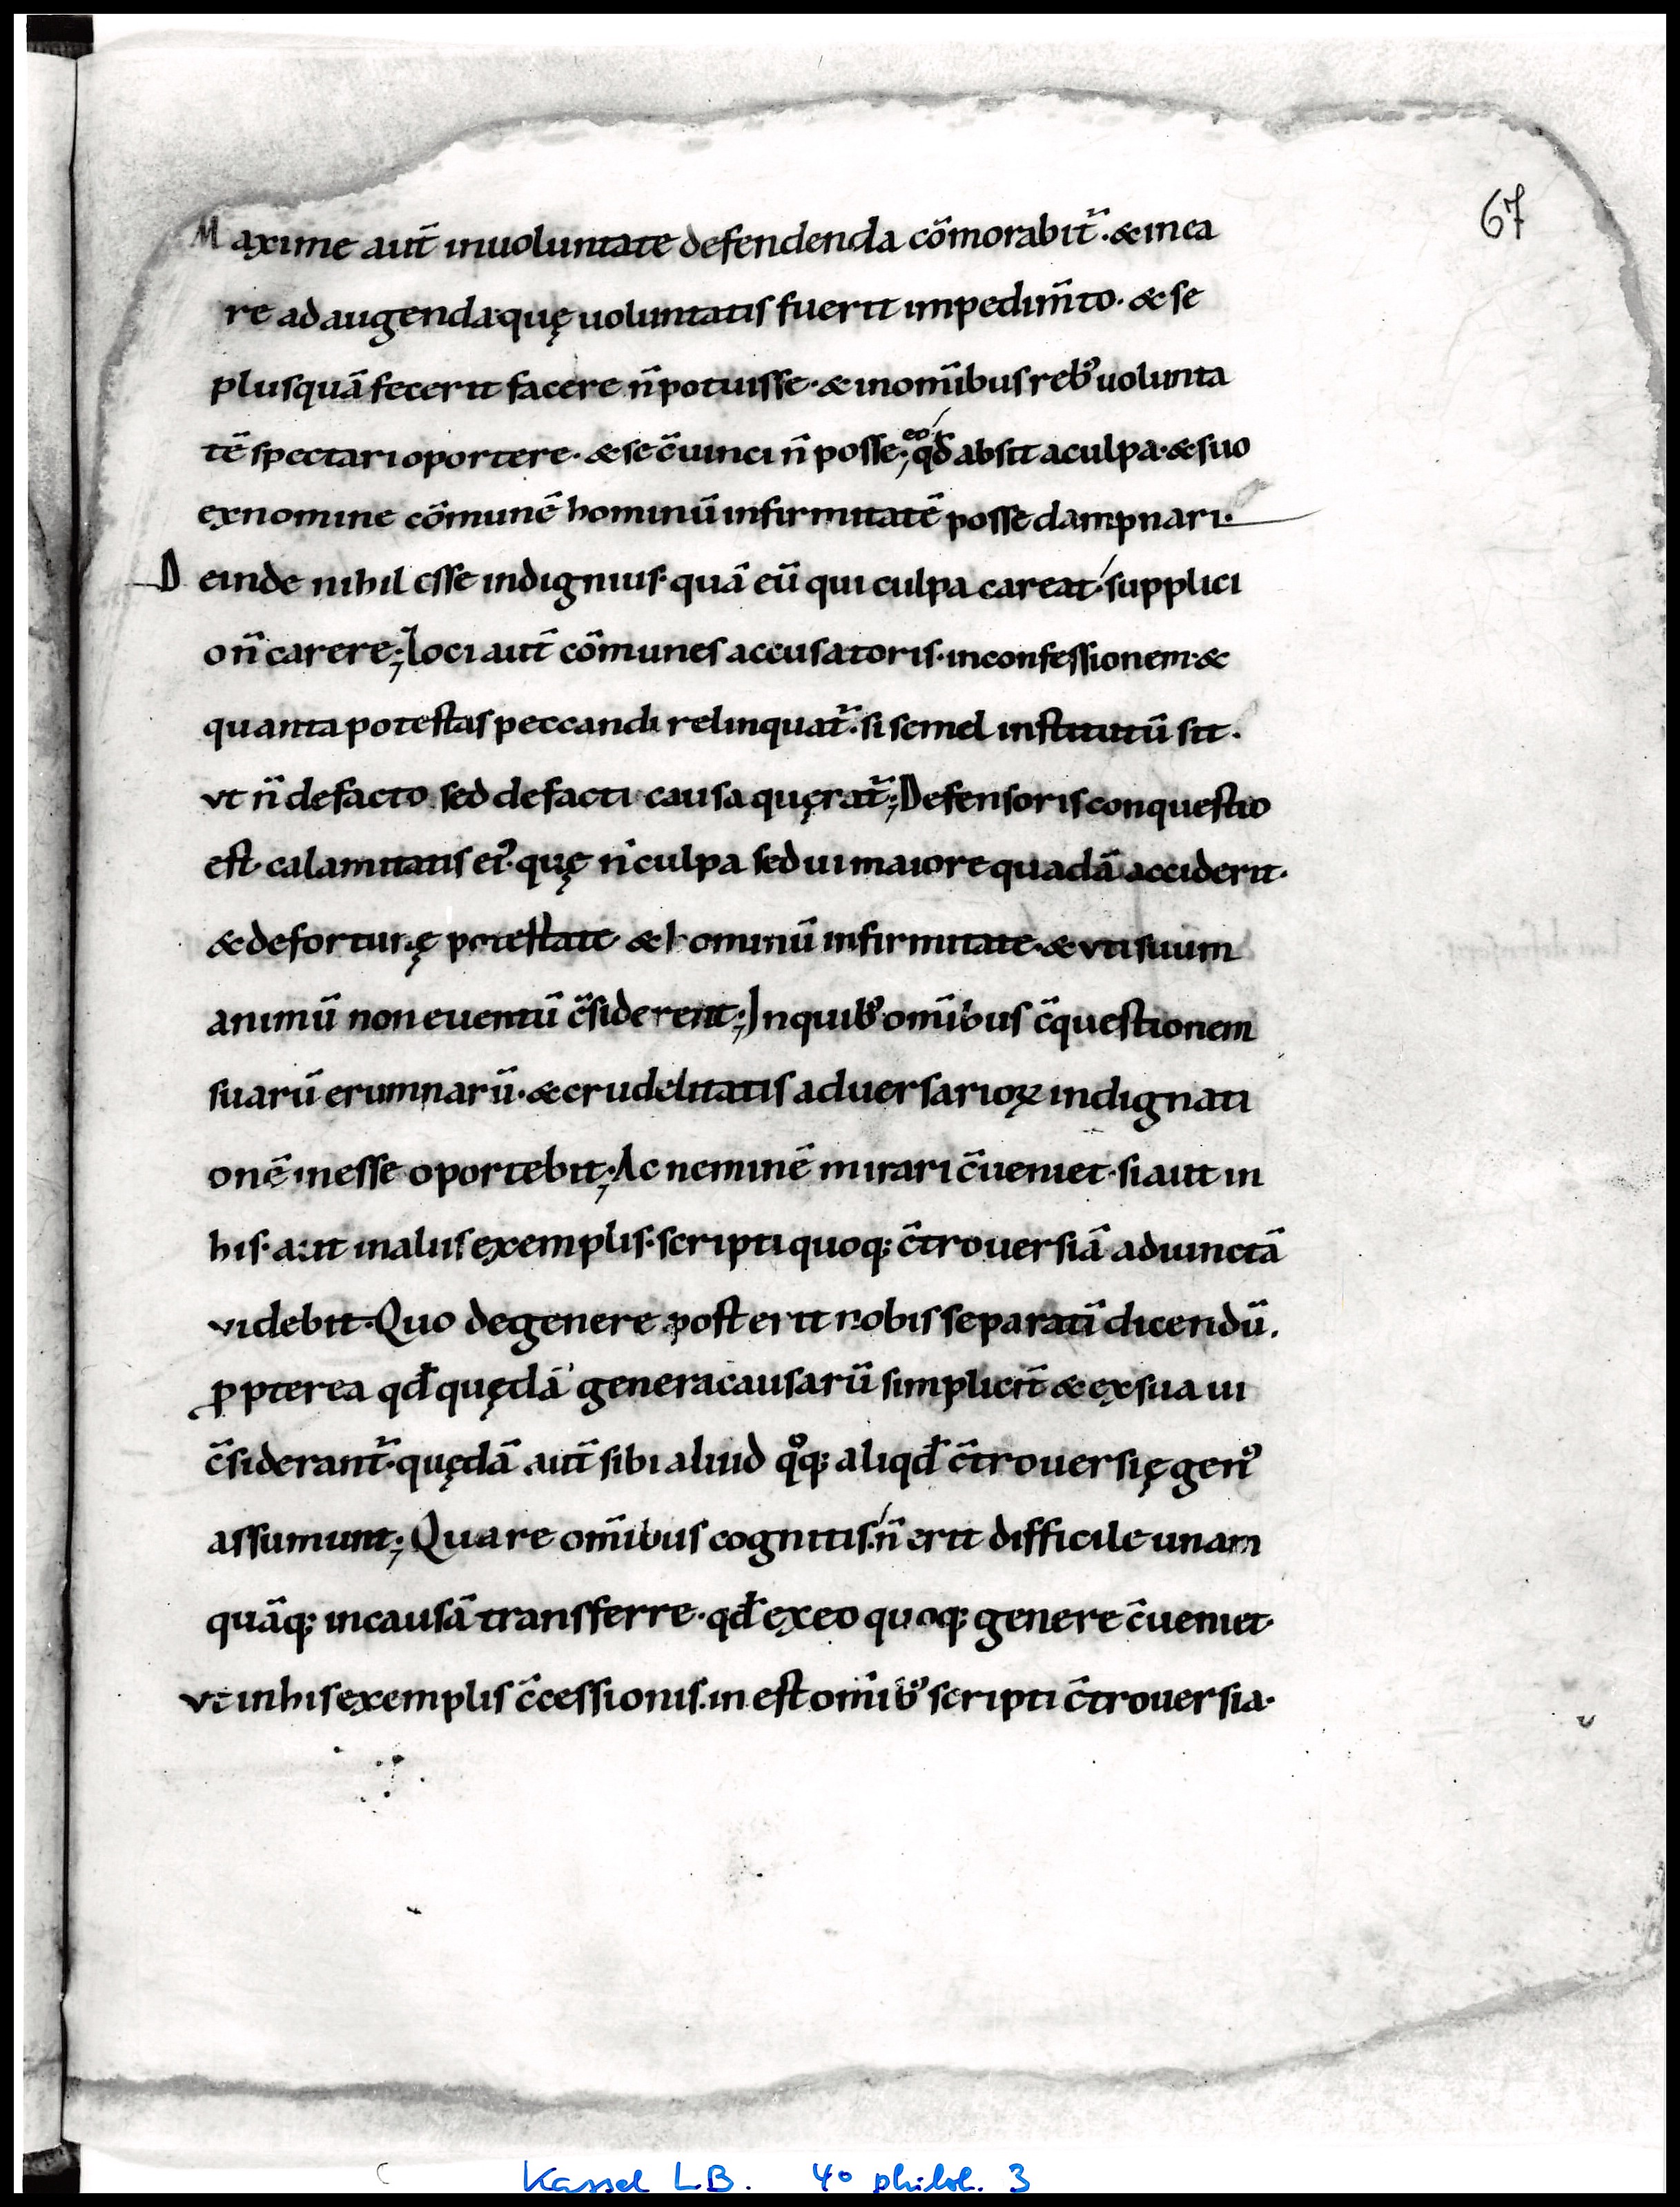 67
Maxime aut̄ inuoluntate defendenda cōmorabit᷑. & in ea
re ad augenda quę uoluntatis fuerit impedim̄to. & se
plusquā fecerit facere n̄ potuisse. & in om̄ibus reb᷒ uolunta
tē spectari oportere. & se c̄uinci n̄ posse; eo qđ absit a culpa. & suo
ex nomine cōmunē hominū infirmitatē posse dampnari.
Deinde nihil esse indignius. quā eū qui culpa careat. supplici
o n̄ carere; Loci aut̄ cōmunes accusatoris. in confessionem. &
quanta potestas peccandi relinquat᷑. si semel institutū sit.
vt n̄ de facto. sed de facti causa quęrat᷑; Defensoris conquestio
est. calamitatis ei᷒. quę n̄ culpa sed ui maiore quadā acciderit.
& de fortunę potestate & hominū infirmitate. & vti suum
animū non euentū c̄siderent; In quib᷒ om̄ibus c̄questionem
suarū erumnarū. & crudelitatis aduersarioꝝ indignati
onē inesse oportebit; Ac neminē mirari c̄ueniet. si aut in
his. aut in aliis exemplis. scripti quoq; c̄trouersiā adiunctā
videbit. Quo de genere post erit nobis separatī dicendū.
ꝓpterea qđ quędā genera causarū simplicit̄ & ex sua ui
c̄siderant᷑. quędā aut̄ sibi aliud qͦq; aliqđ c̄trouersię gen᷒
assumunt; Quare om̄ibus cognitis. n̄ erit difficile unam
quāq; in causā transferre. qđ ex eo quoq; genere c̄ueniet.
vt in his exemplis c̄cessionis. in est om̄ib᷒ scripti c̄trouersia.
Kassel LB. 4° philol. 3